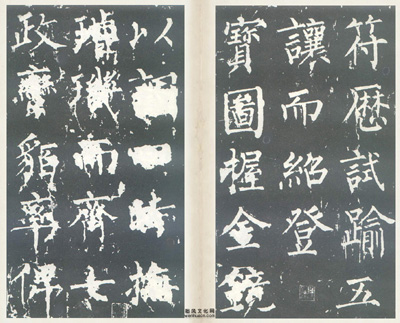 符歷試踰五
讓而紹登
寶圖握金鏡
以調四時撫
璿璣而齊七
政蠻貊率俾